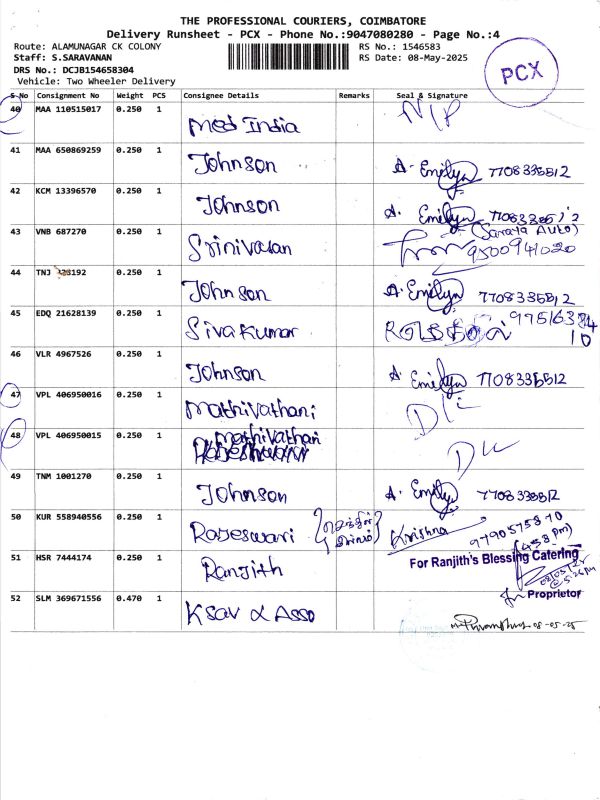 THE PROFESSIONAL COURIERS, COIMBATORE
Delivery Runsheet - PCX - Phone No.:9047080280 - Page No.:4
Route: ALAMUNAGAR CK COLONY
RS No.: 1546583
Staff: S.SARAVANAN
RS Date: 08-May-2025
DRS No.: DCJB154658304
Vehicle: Two Wheeler Delivery
PCX
S No Consignment No Weight PCS Consignee Details Remarks Seal & Signature
40 MAA 110515017 0.250 1 Med India N/P
41 MAA 650869259 0.250 1 Johnson A. Emilyn 7708335512
42 KCM 13396570 0.250 1 Johnson A. Emilyn 7708335512
43 VNB 687270 0.250 1 Srinivasan (Saraya Auto) 9500941020
44 TNJ 192 0.250 1 Johnson A. Emilyn 7708335512
45 EDQ 21628139 0.250 1 Sivakumar
46 VLR 4967526 0.250 1 Johnson A. Emilyn 7708335512
47 VPL 406950016 0.250 1 Mathivathani D/L
48 VPL 406950015 0.250 1 Mathivathani D/L
49 TNM 1001270 0.250 1 Johnson A. Emily 7708335512
50 KUR 558940556 0.250 1 Rajeswari Krishna 9790575870
(4:58 pm)
51 HSR 7444174 0.250 1 Ranjith For Ranjith's Blessing Catering
08/05/25
5:26 pm
Proprietor
52 SLM 369671556 0.470 1 Ksav & Asso 08-05-25